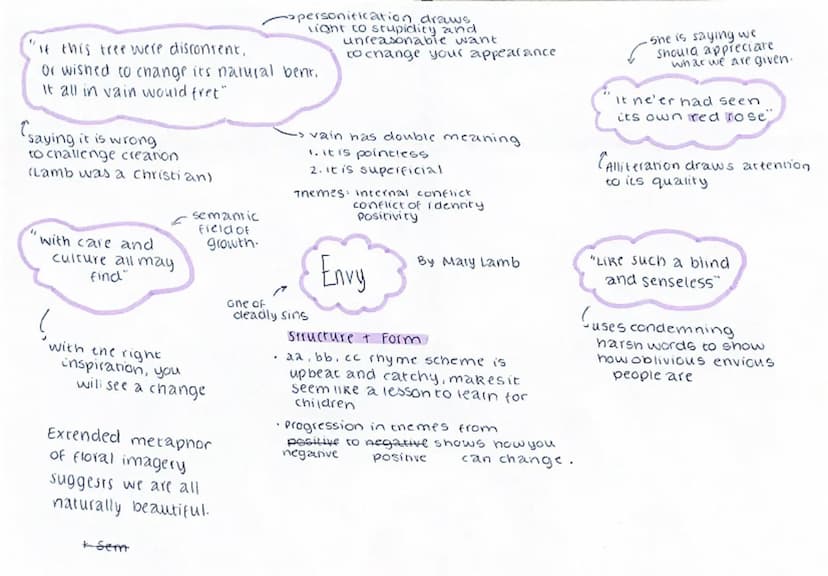 "If this tree were discontent,
Or wished to change its natural bent,
It all in vain would fret"
personification draws
light to stupidity and
unreasonable want
to change your appearance
she is saying we
should appreciate
what we are given.
"It ne'er had seen
its own red rose"
saying it is wrong
to challenge creation
(Lamb was a Christian)
vain has double meaning
1. it is pointless
2. it is superficial
Alliteration draws attention
to its quality
Themes: internal conflict
conflict of identity
positivity
semantic
field of
growth.
"with care and
culture all may
find"
Envy
By Mary Lamb
one of
deadly sins
"Like such a blind
and senseless"
uses condemning
harsh words to show
how oblivious envious
people are
with the right
inspiration, you
will see a change
Structure + Form
• aa, bb, cc rhyme scheme is
upbeat and catchy, makes it
seem like a lesson to learn for
children
• Progression in themes from
positive to negative shows how you
negative positive can change.
Extended metaphor
of floral imagery
suggests we are all
naturally beautiful.
+ Sem